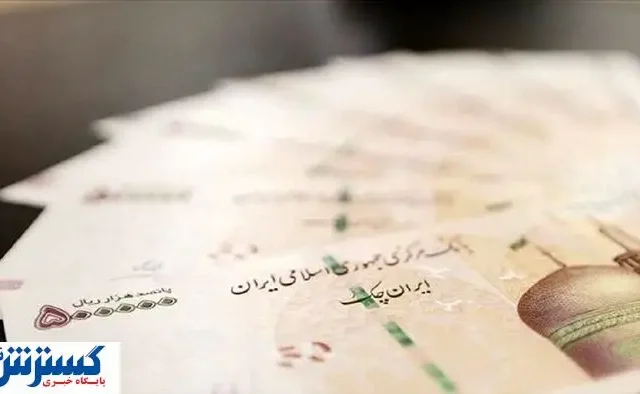 بانک مرکزی جمهوری اسلامی ایران
ایران چک
پانصد هزار ریال
۵۰۰۰۰۰
گسترش
پایگاه خبری